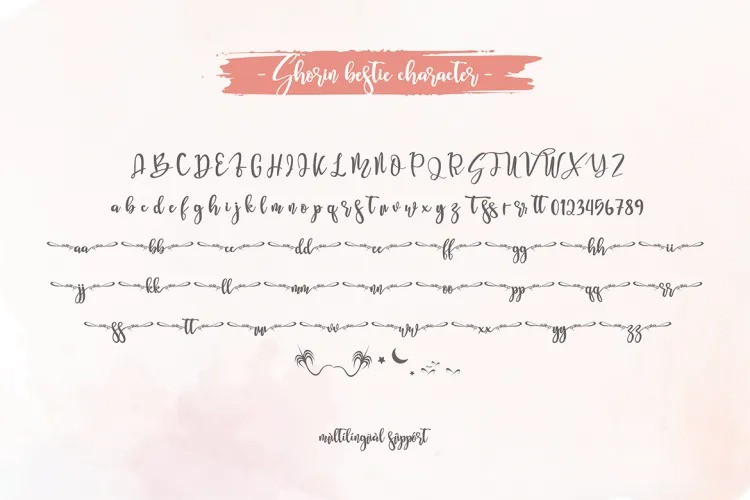 - Shorin bestie character -
A B C D E F G H I J K L M N O P Q R S T U V W X Y Z
a b c d e f g h i j k l m n o p q r s t u v w x y z T ss r rr tt 0123456789
aa bb cc dd ee ff gg hh ii
jj kk ll mm nn oo pp qq rr
ss tt uu vv ww xx yy zz
multilingual support